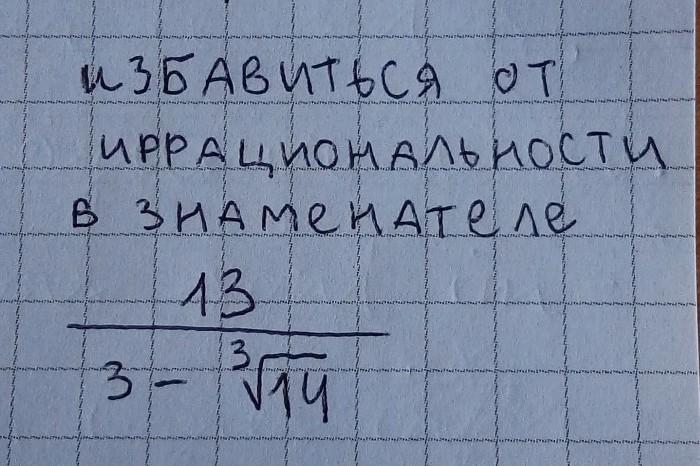 ИЗБАВИТЬСЯ ОТ
ИРРАЦИОНАЛЬНОСТИ
В ЗНАМЕНАТЕЛЕ
13
3 - ³√14